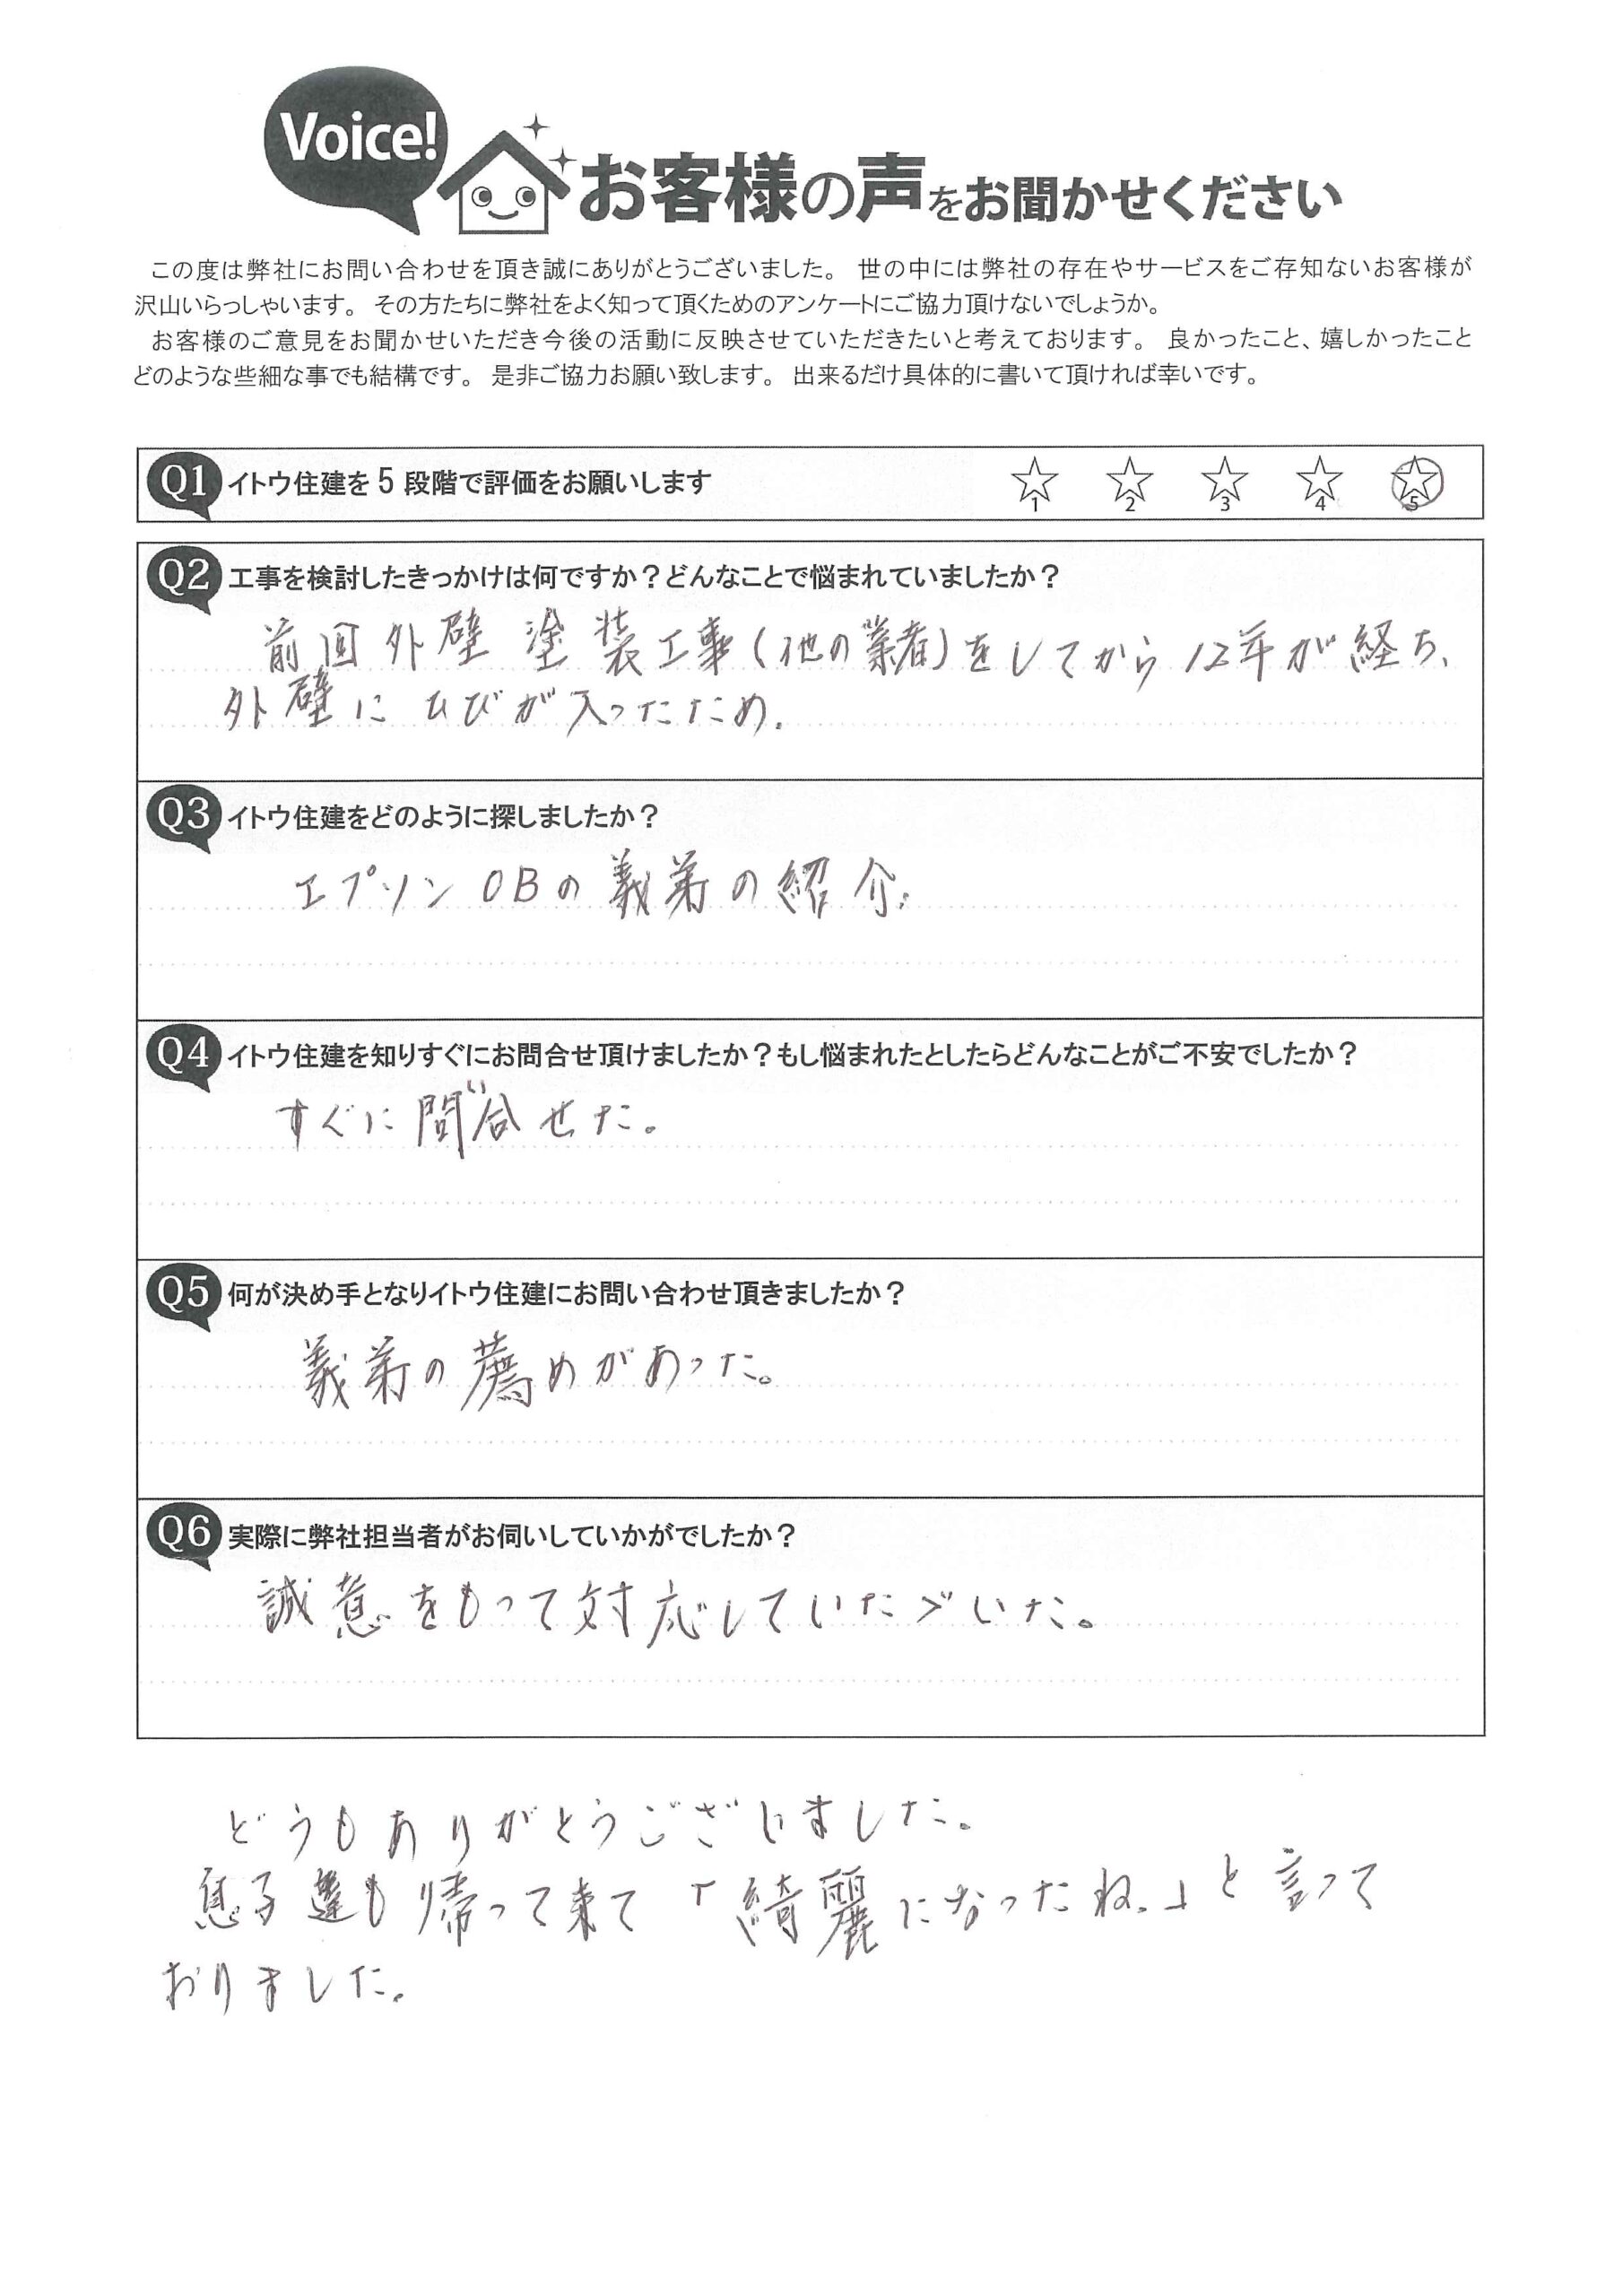 Voice!
お客様の声をお聞かせください
この度は弊社にお問い合わせを頂き誠にありがとうございました。 世の中には弊社の存在やサービスをご存知ないお客様が
沢山いらっしゃいます。 その方たちに弊社をよく知って頂くためのアンケートにご協力頂けないでしょうか。
お客様のご意見をお聞かせいただき今後の活動に反映させていただきたいと考えております。 良かったこと、嬉しかったこと
どのような些細な事でも結構です。 是非ご協力お願い致します。 出来るだけ具体的に書いて頂ければ幸いです。
Q1 イトウ住建を 5 段階で評価をお願いします ☆1 ☆2 ☆3 ☆4 ☆5
Q2 工事を検討したきっかけは何ですか?どんなことで悩まれていましたか?
前回外壁塗装工事(他の業者)をしてから12年が経ち、
外壁にひびが入ったため。
Q3 イトウ住建をどのように探しましたか?
エプソンOBの義弟の紹介。
Q4 イトウ住建を知りすぐにお問合せ頂けましたか?もし悩まれたとしたらどんなことがご不安でしたか?
すぐに問い合せた。
Q5 何が決め手となりイトウ住建にお問い合わせ頂きましたか?
義弟の薦めがあった。
Q6 実際に弊社担当者がお伺いしていかがでしたか?
誠意をもって対応していたヾいた。
どうもありがとうございました。
息子達も帰って来て「綺麗になったね。」と言って
おりました。